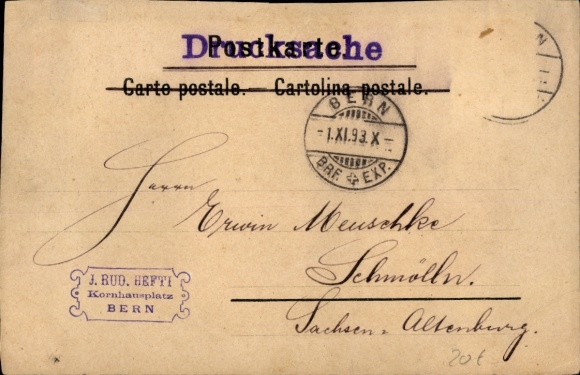 Postkarte.
Drucksache
Carte postale. — Cartolina postale.
BERN
-1.XI.93.X-
BRF. EXP.
Herrn
Erwin Meuschke
Schmölln.
Sachsen-Altenburg.
J. RUD. HEFTI
Kornhausplatz
BERN
20€